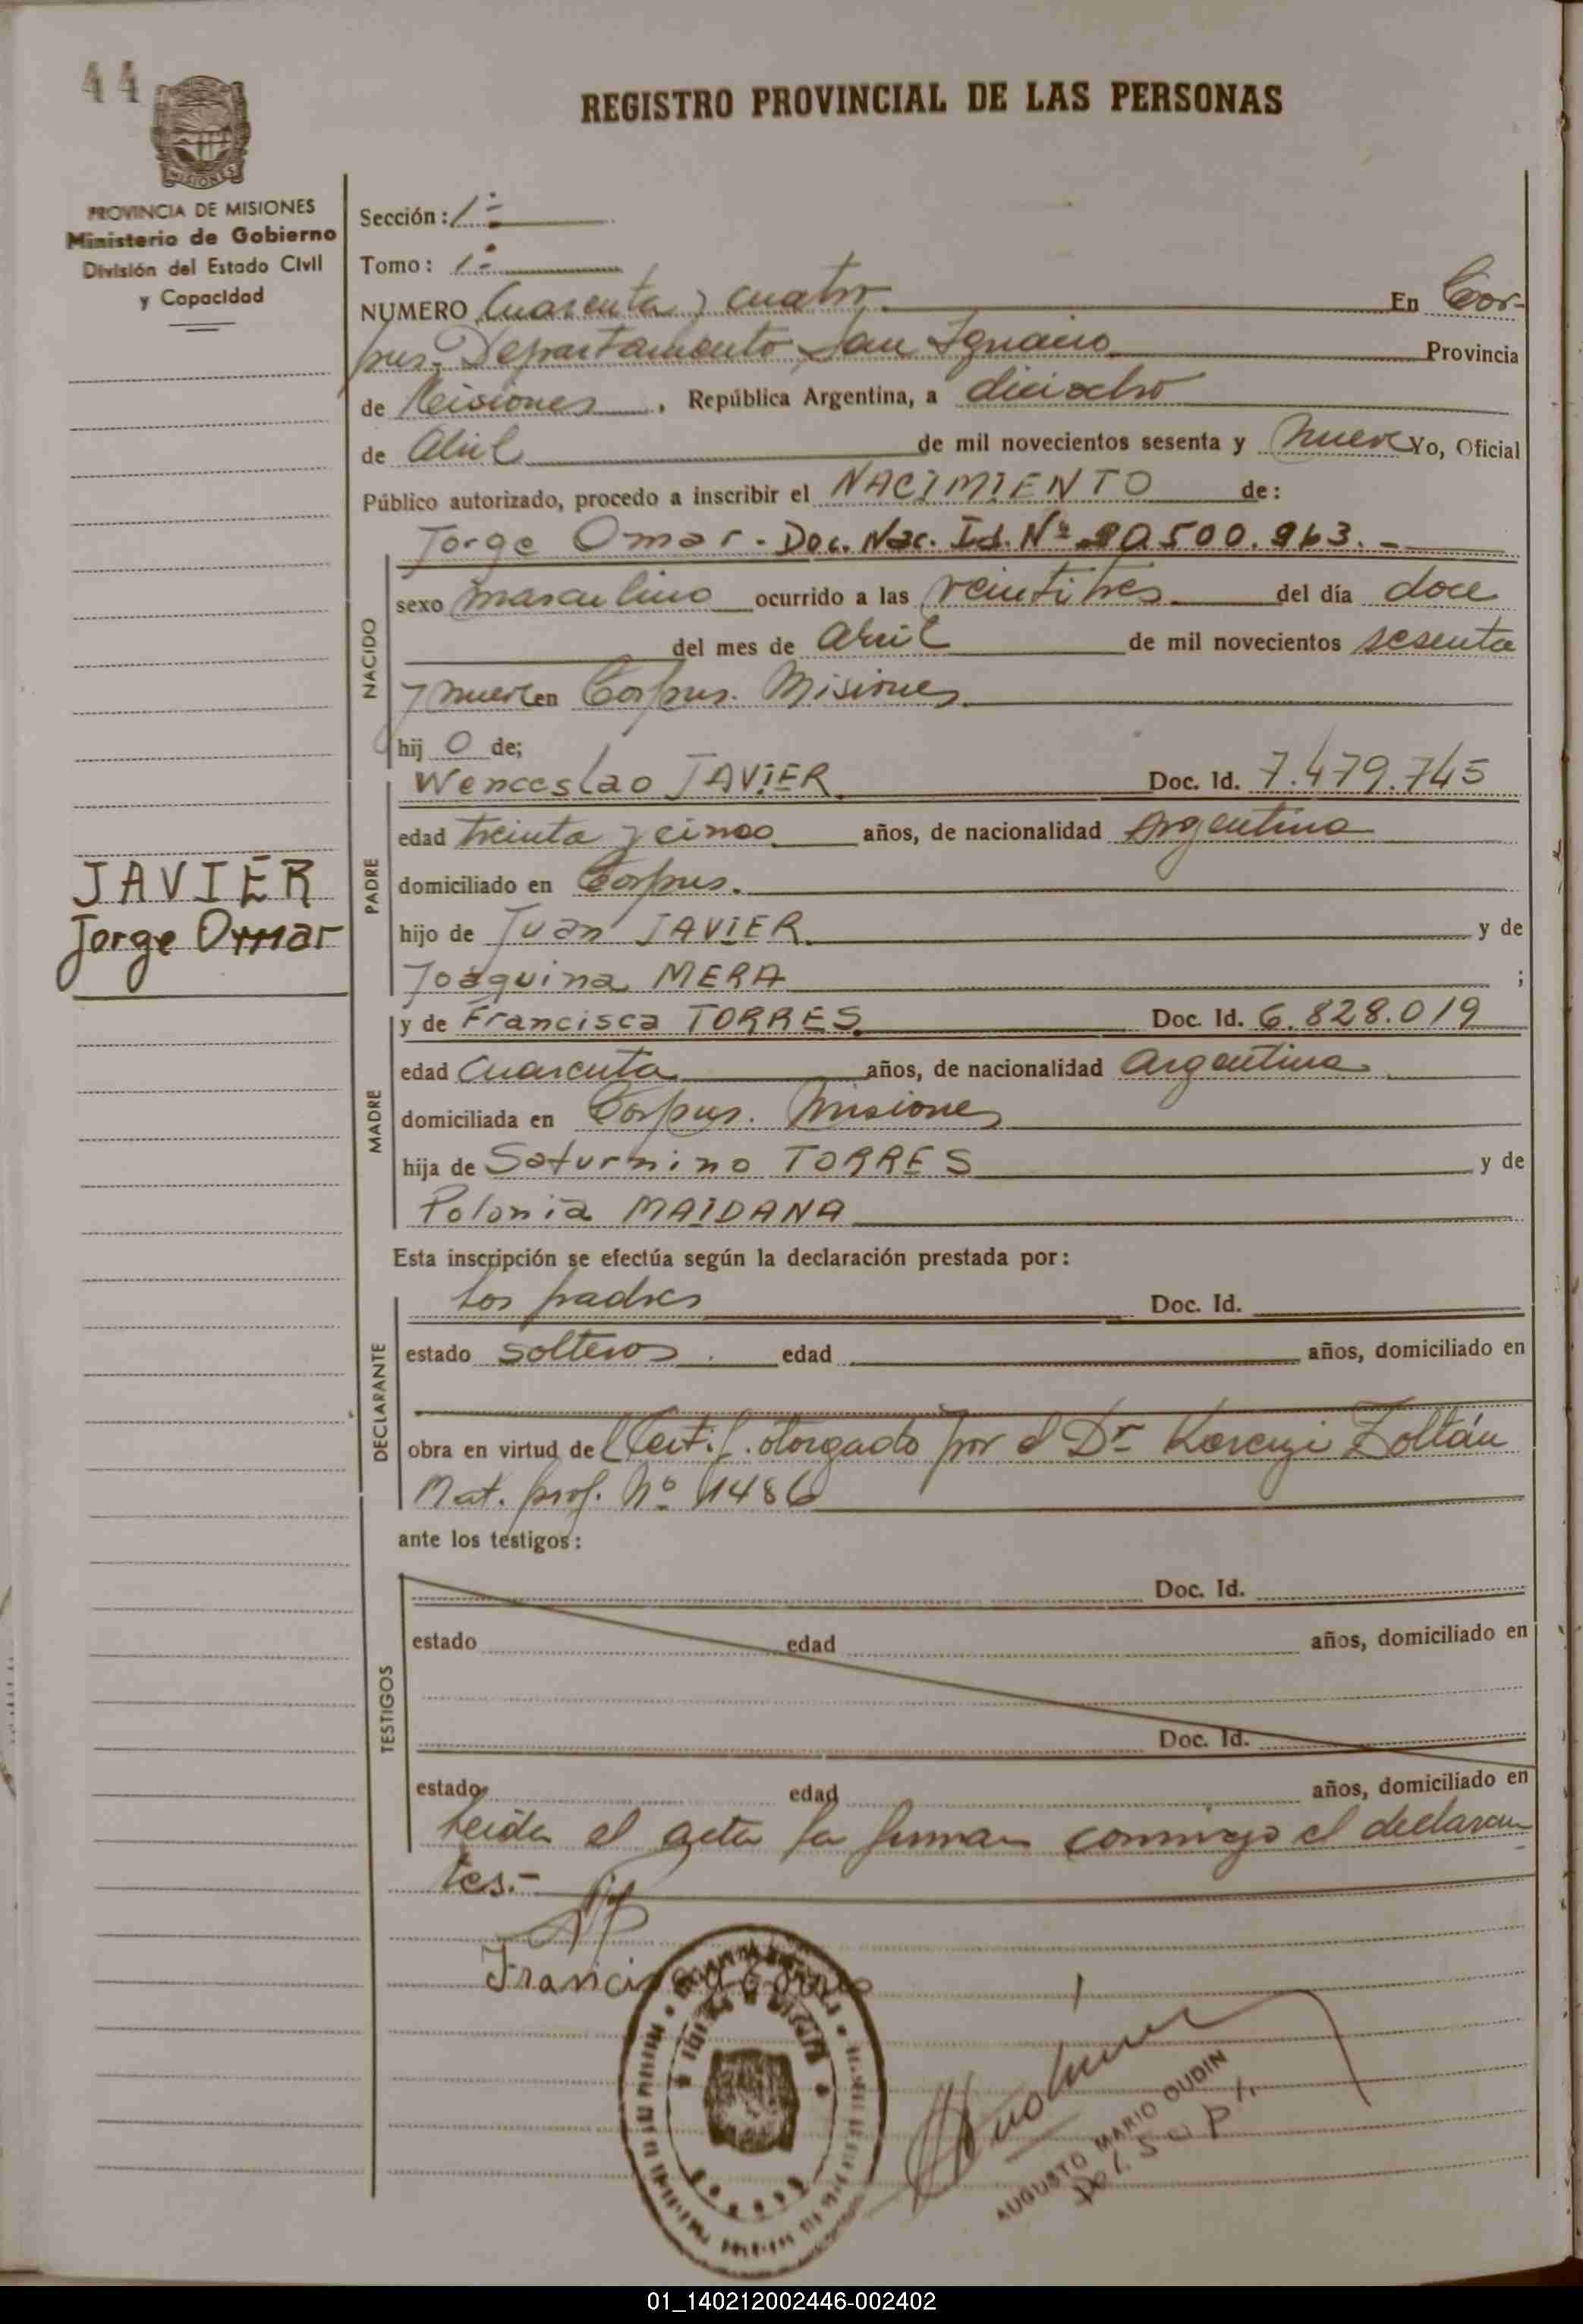 44
REGISTRO PROVINCIAL DE LAS PERSONAS
MISIONES
PROVINCIA DE MISIONES
Ministerio de Gobierno
División del Estado Civil
y Capacidad
Sección: 1-
Tomo: 1-
NUMERO Cuarenta y cuatro En Cor-
pus- Departamento San Ignacio Provincia
de Misiones, República Argentina, a dieciocho
de Abril de mil novecientos sesenta y nueve Yo, Oficial
Público autorizado, procedo a inscribir el NACIMIENTO de:
Jorge Omar - Doc. Nac. Id. Nº 20.500.963.-
NACIDO
sexo masculino ocurrido a las veintitres del día doce
del mes de abril de mil novecientos sesenta
y nueve en Corpus. Misiones
hij o de;
Wenceslao JAVIER Doc. Id. 7.479.745
PADRE
edad treinta y cinco años, de nacionalidad Argentina
domiciliado en Corpus.
JAVIER
Jorge Omar
hijo de Juan JAVIER y de
Joaquina MERA ;
y de Francisca TORRES Doc. Id. 6.828.019
MADRE
edad Cuarenta años, de nacionalidad argentina
domiciliada en Corpus. Misiones
hija de Saturnino TORRES y de
Polonia MAIDANA
Esta inscripción se efectúa según la declaración prestada por:
DECLARANTE
Los padres Doc. Id.
estado solteros. edad años, domiciliado en
obra en virtud de Certif. otorgado por el Dr Zoltán
Mat. prof. Nº 1486
ante los testigos:
TESTIGOS
Doc. Id.
estado edad años, domiciliado en
Doc. Id.
estado edad años, domiciliado en
Leida el acta la firman conmigo el declaran
tes.-
AUGUSTO MARIO OUDIN
01_140212002446-002402